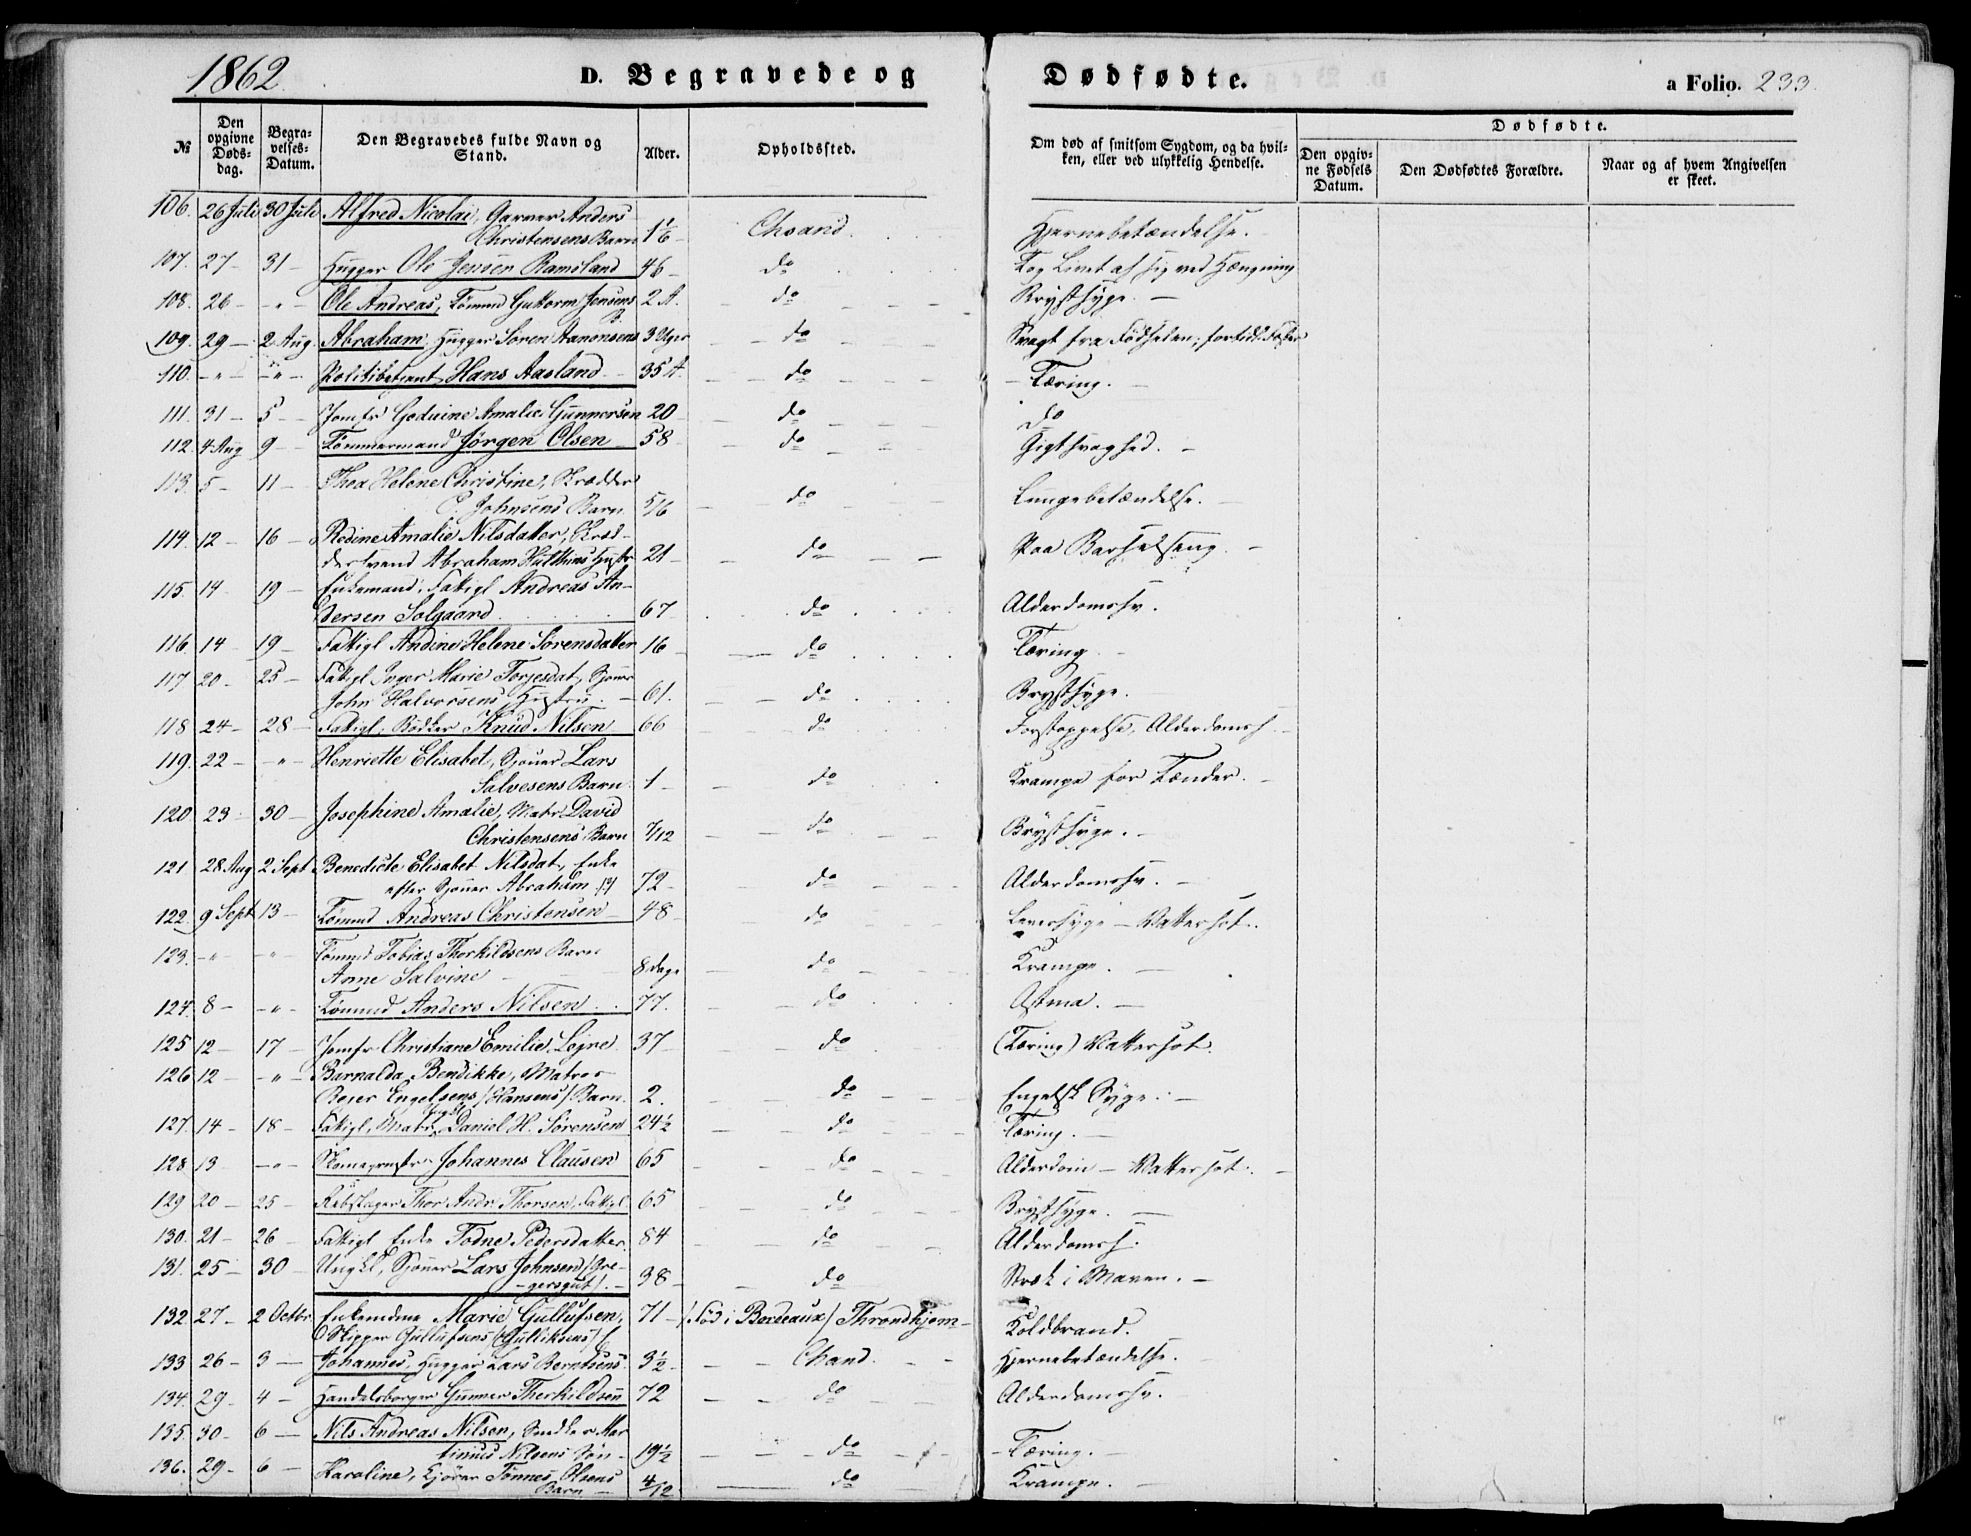 1862. D. Begravede og Dødfødte. a Folio. 233.
№ Den opgivne Døds-dag. Begra-velses-Datum. Den Begravedes fulde Navn og Stand. Alder. Opholdssted. Om død af smitsom Sygdom, og da hvil-ken, eller ved ulykkelig Hendelse. Dødfødte. Den opgiv-ne Fødsels Datum. Den Dødfødtes Forældre. Naar og af hvem Angivelsen er skeet.
106. 26 Juli 30 Juli Alfred Nicolai, Garver Anders
Christensens Barn 1 1/6 Chsand. Hjernebetændelse.
107. 27 - 31 - Hugger Ole Jensen Ramsland 46 - do Tog Livet af sig ved Hængning
108. 26 - - " - Ole Andreas, Tømmd Guttorm Jensens B. 2 A. do Brystsyge. -
109. 29 - 2 Aug. Abraham, Hugger Søren Aanonsens 3 Uger do Svagt fra Fødselen;
110. - " - - " - Politibetjent Hans Aasland - 35 A. do Tæring. -
111. 31 - 5 - Jomfr Amalie Gunnersen 20 do do
112. 4 Aug 9 - Tømmermand Jørgen Olsen 58 - do Gigtsvaghed. -
113. 5 - 11 - Thea Helene Christine, Skrædder
P. Johnsens Barn. 5/6 do Lungebetændelse. -
114. 12 - 16 - Redine Amalie Nilsdatter, Skræd-
dersvend Abraham Hustr 21 - do Paa Barselseng. -
115. 14 - 19 - Enkemand, Fattigl Andreas An-
dersen Solgaard 67 do Alderdomssv.
116. 14 - 19 - Fattigl Andine Helene Sørensdatter 16 - do Tæring -
117. 20 - 25 - Fattigl Inger Marie Torjesdat, Sjouer
John Halvorsens Hustru. - 61. do Brystsyge.
118. 24 - 28 - Fattigl, Bødker Knud Nilsen 66 do Forstoppelse, Alderdoms
119. 22 - - " - Henriette Elisabet, Sjouer Lars
Salvesens Barn. 1 - do Krampe for Tænder. -
120. 23 - 30 - Josephine Amalie, Matr David
Christensens Barn 7/12 do Brystsyge. -
121. 28 Aug 2 Sept Benedicte Elisabet Nilsdat, Enke
efter Sjouer Abraham (?) 72 - do Alderdomssv. -
122. 9 Sept 13 - Tømmd Andreas Christensen 48 - do Leversyge - Vattersot.
123. - " - - " - Tømmd Tobias Thorkildsens Barn
Anne Salvine 8 Dage do Krampe. -
124. 8 - - " - Tømmd Anders Nilsen 77. do Astma. -
125. 12 - 17 - Jomfr Christiane Emilie Lejne. 37 - do (Tæring) Vattersot.
126. 12 - - " - Barnalda Bendikke, Matros
Reier Engelsens (Hansens) Barn. 2. do Engelsk Syge. -
127. 14 - 18 - Fattigl, Matr, Daniel H. Sørensen 24 1/2 do Tæring. -
128. 13 - " - Skomagermstr Johannes Clausen 65 do Alderdom - Vattersot. -
129. 20 - 25 - Rebslager Thor Andr. Thorsen, Fattigl. 65 do Brystsyge. -
130. 21 - 26 - Fattigl Enke Todne Pedersdatter. 84 do Alderdoms.
131. 25 - 30 - Ungkl, Sjouer Lars Johnsen (Gre-
gersgut). - 38 - do i Maven. -
132. 27 - 2 Octbr. Enkemdme Marie Gullufsen, 71 - (Død i Bordeaux) Throndhjem - Koldbrand.
Skipper Gullufsens (Gulliksens)
133 26 - 3 - Johannes, Hugger Lars Berntsens 3 1/2 - Chsand. Hjernebetændelse.
134. 29 - 4 - Handelsborger Gunner Therkildsen 72 do Alderdomssv.
135. 30 - 6 - Nils Andreas Nilsen, Snedker Mar-
tinius Nilsens Søn - 19 1/2 do - Tæring. -
136. 29 - 6 - Karoline, Kjører Tønnes Olsens
Barn - 4/12 do Krampe. -